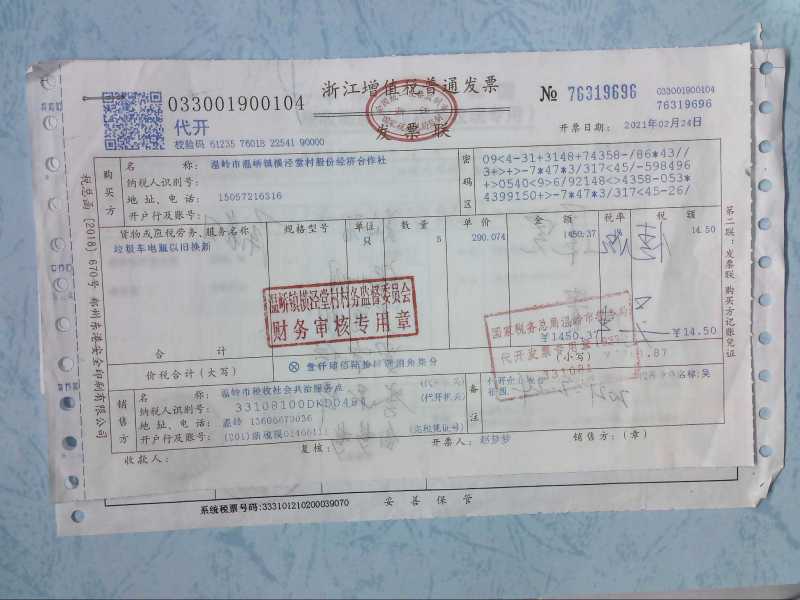 浙江增值税普通发票
发票联
033001900104
代开
校验码 61235 76018 22541 90000
№ 76319696
033001900104
76319696
开票日期: 2021年02月24日
税总函〔2018〕670号 郴州东港安全印刷有限公司
购买方
名 称: 温岭市温峤镇横泾堂村股份经济合作社
纳税人识别号:
地址、电话: 15057216316
开户行及账号:
密码区
09<4-31+3148+74358-/86*43//
3+>+>-7*47*3/317<45/-598496
+>0540<9>6/92148<>4358-053*
4399150+>-7*47*3/317<45-26/
货物或应税劳务、服务名称 规格型号 单位 数量 单价 金额 税率 税额
垃圾车电瓶以旧换新 只 5 290.074 1450.37 14.50
温峤镇横泾堂村村务监督委员会
财务审核专用章
国家税务总局温岭市税务局
代开发票专用章
合计 ¥1450.37 ¥14.50
价税合计(大写) (小写)
销售方
名 称: 温岭市税收社会共治服务点
纳税人识别号:
地址、电话:
开户行及账号:
(代开机关)
(完税凭证号)
备注
收款人:
复核:
开票人:
销售方:(章)
第二联:发票联 购买方记账凭证
系统税票号码:333101210200039070
妥善保管